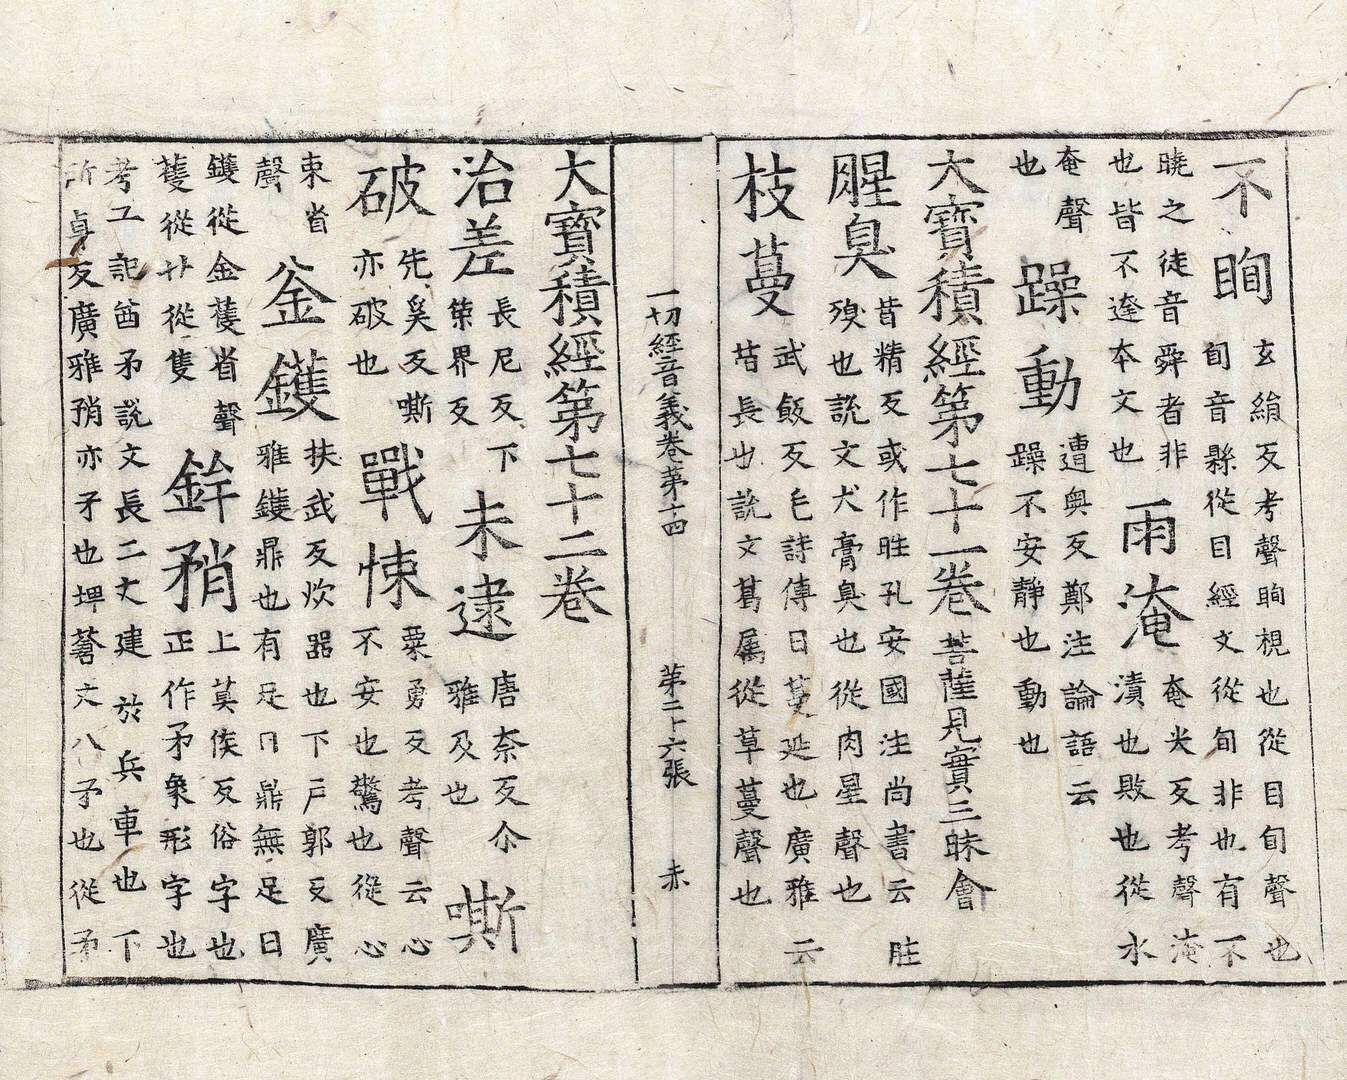 不眴玄絹反考聲眴視也從目旬聲也
旬音縣從目經文從旬非也有不
曉之徒音舜者非
也皆不逹本文也
雨淹奄炎反考聲淹
漬也敗也從水
奄聲
也
躁動遭奥反鄭注論語云
躁不安静也動也
大寶積經第七十一卷菩薩見實三昧會
腥臭昔精反或作胜孔安國注尚書云胜
殠也說文犬膏臭也從肉星聲也
枝蔓武飯反毛詩傳曰蔓延也廣雅云
昔長也說文葛属從草蔓聲也
一切經音義卷第十四 第二十六張 赤
大寶積經第七十二卷
治差長尼反下
策界反
未逮唐柰反尒
雅及也
嘶
破先奚反嘶
亦破也
戰悚粟勇反考聲云心
不安也驚也從心
束省
聲
釜鑊扶武反炊器也下戶郭反廣
雅鑊鼎也有足曰鼎無足曰
鑊從金蒦省聲
蒦從廾從隻
鉾矟上莫侯反俗字也
正作矛衆形字也
考工記酋矛說文長二丈建於兵車也下
所卓反廣雅矟亦矛也埤蒼丈八矛也從矛